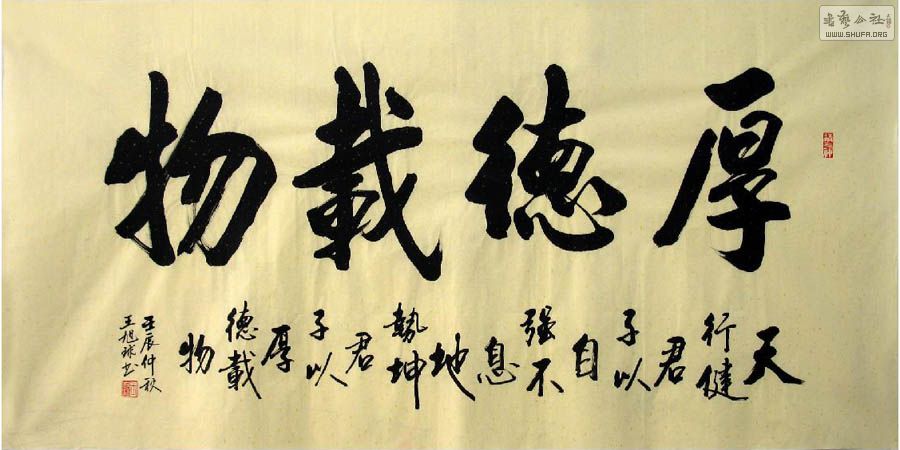 厚德載物
天行健君子以自强不息地勢坤君子以厚德載物
壬辰仲秋
王旭球书
书艺公社
WWW.SHUFA.ORG